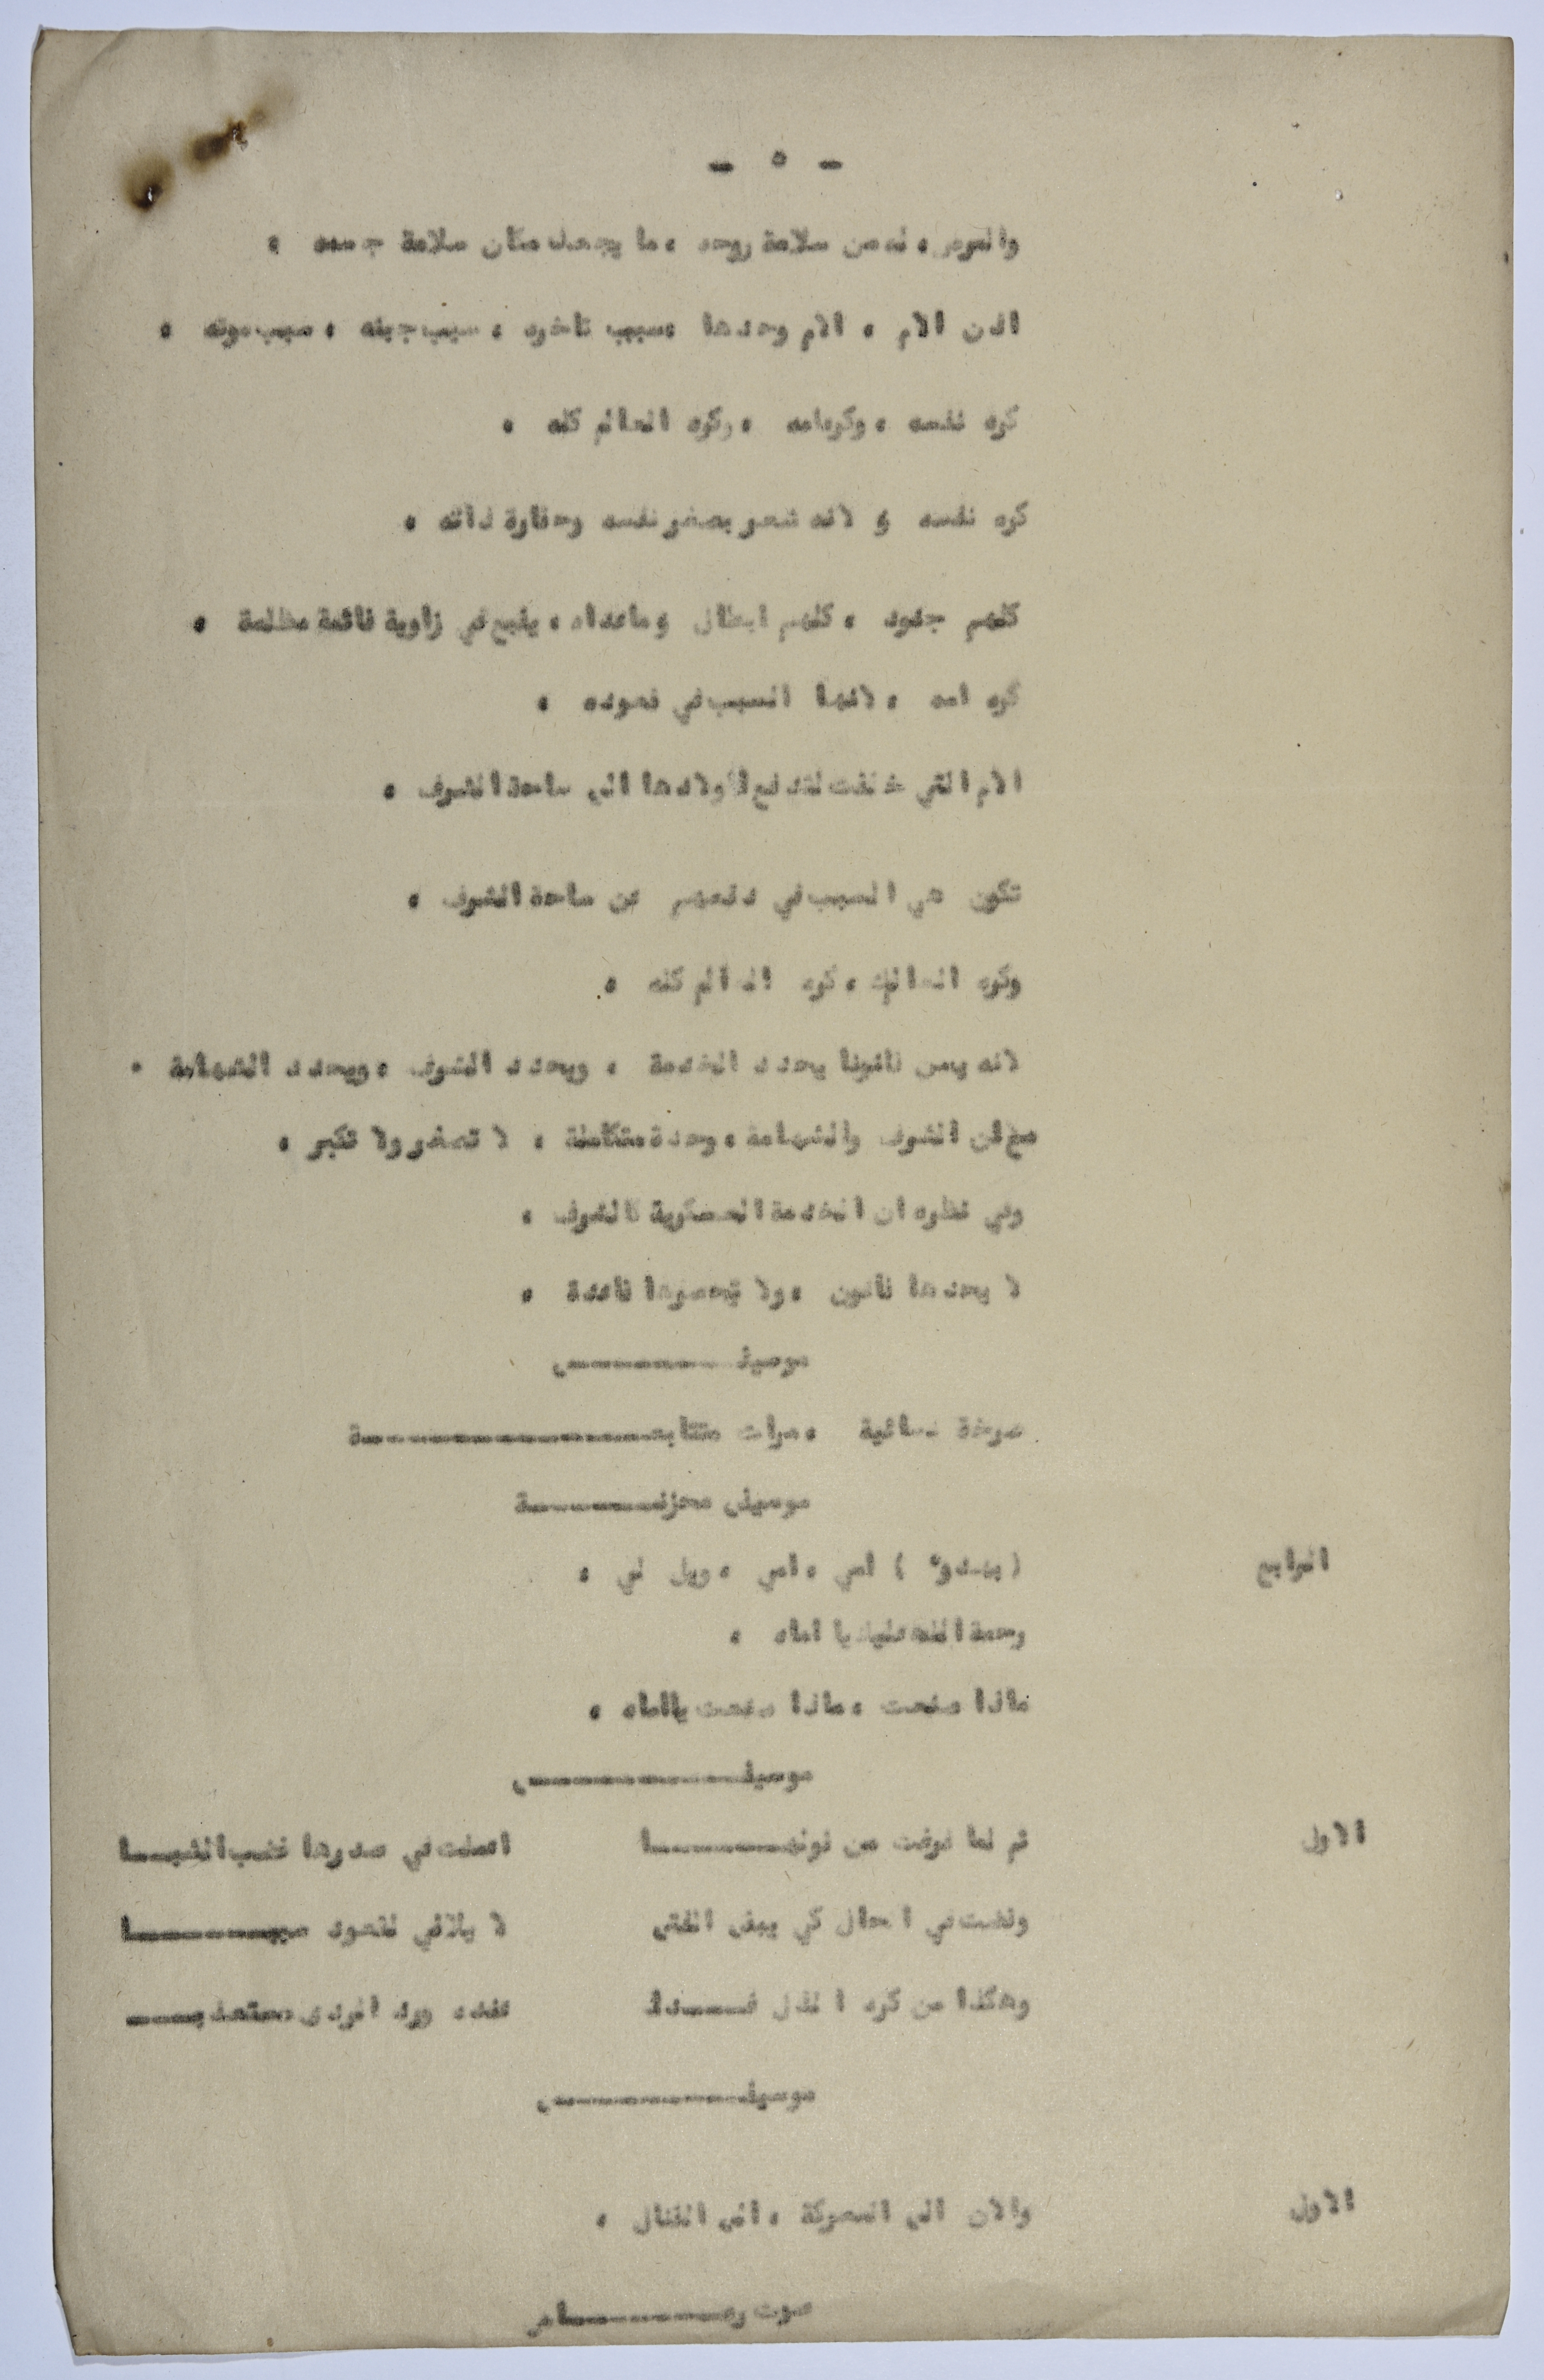 - ٥ -
والمرض، له من سلامة روحه ، ما يجعله مكان سلامة جسده .
اذن الام ، الام وحدها ،سبب تاخره ، سبب جبنه ، سبب موته .
كره نفسه ، وكره امه ، وكره العالم كله .
كره نفسه و لانه شعر بصغر نفسه وحقارة ذاته .
كلهم جنود ، كلهم ابطال وماعداه ، يقبع في زاوية قاتمة مظلمة .
كره امه ، لانها السبب في قعوده .
الام التي خلقت لتدفع اولادها الى ساحة الشرف .
تكون هي السبب في دفعهم عن ساحة الشرف .
وكره العالم ، كره العالم كله .
لانه يسن قانونا يحدد الخدمة ، ويحدد الشرف ، ويحدد الشهامة .
مع ان الشرف والشهامة ، وحدة متكاملة ، لا تصغر ولا تكبر .
وفي نظره ان الخدمة العسكرية كالشرف .
لا يحدها قانون ، ولا تحصرها قاعدة .
موسيقـــــــى
صرخة نسائية ، مرات متتابعـــــــــــة
موسيقى محزنـــــــة
الرابع ( بهدوء ) امي ، امي ، ويل لي .
رحمة الله عليك يا اماه .
ماذا صنعت ، ماذا صنعت يااماه .
موسيقـــــــــى
الاول ثم لما فرغت من قولهـــــــا اعملت في صدرها غضب الشبـــا
وقضت في الحال كي يبقى الفتى لا يلاقي لقعود سببـــــــا
وهكذا من كره الذل فـــــدا عنده ورد الردى مستعذبـــــا
موسيقـــــــــى
الاول والان الى المعركة ، الى القتال .
صوت رصـــــــــاص